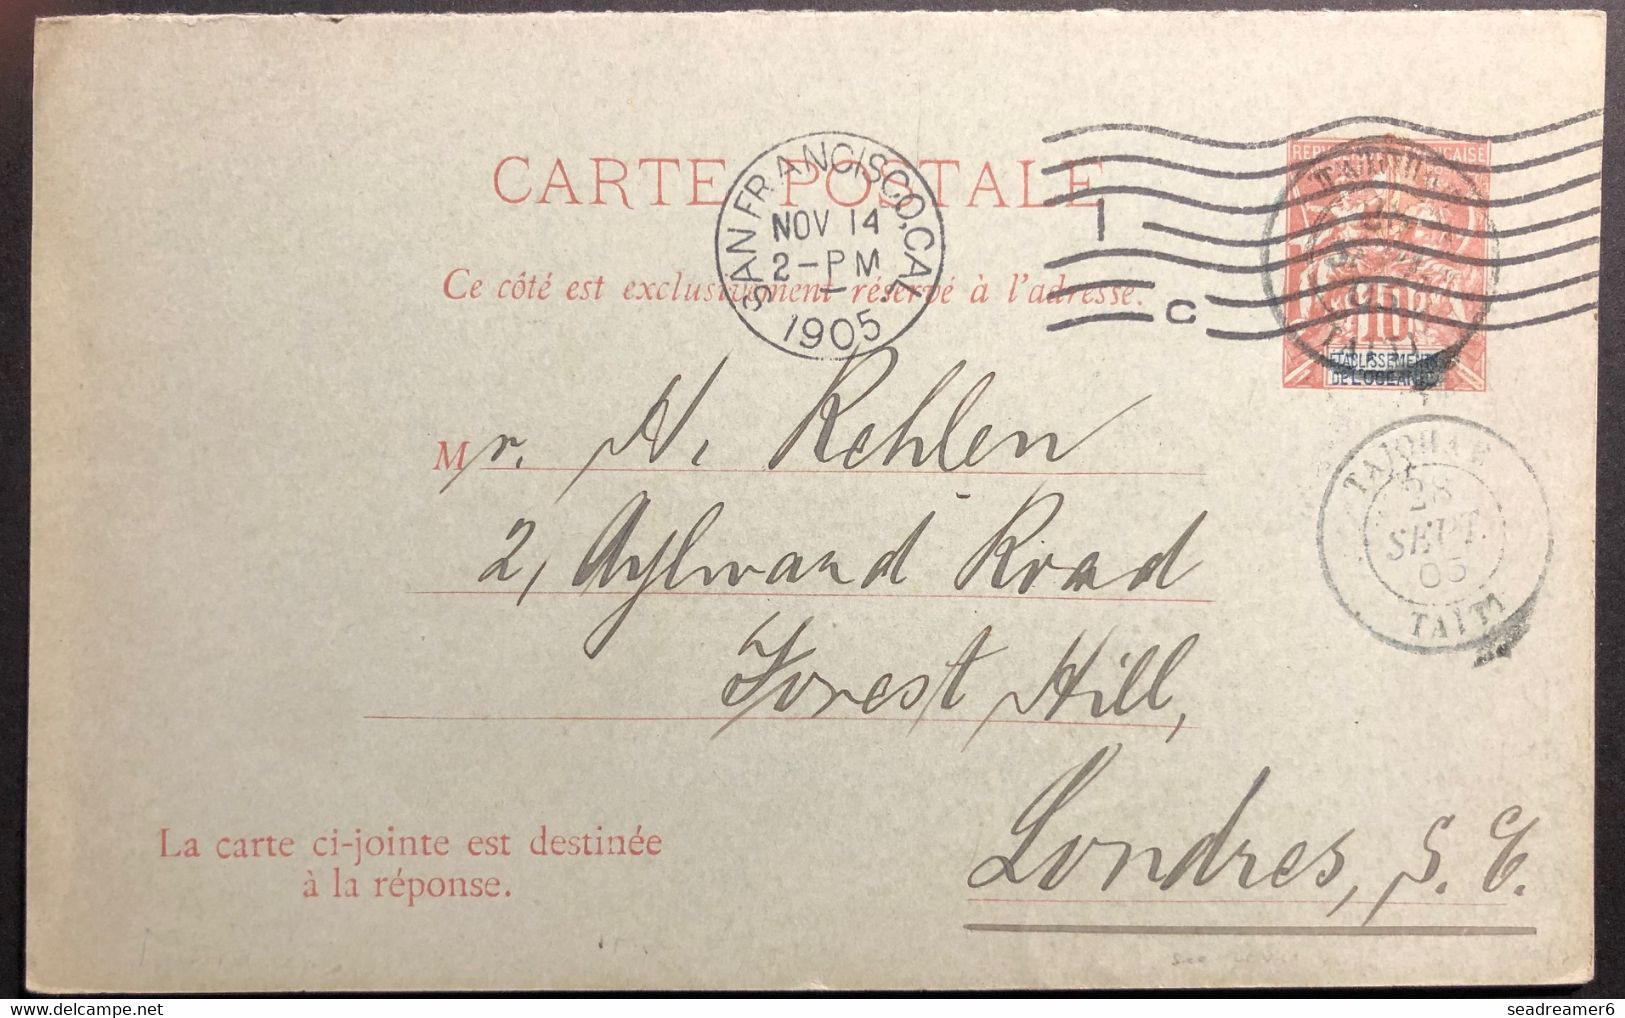 CARTE POSTALE
Ce côté est exclusivement réservé à l'adresse.
SAN FRANCISCO, CAL.
NOV 14
2-PM
1905
1
C
REPUBLIQUE FRANÇAISE
10
ÉTABLISSEMENTS
DE L'OCÉANIE
TAIOHAE
28
SEPT.
05
TAITI
Mr. H. Rehlen
2, Aylward Road
Forest Hill,
Londres, S. E.
TAIOHAE
28
SEPT.
05
TAÏTI
La carte ci-jointe est destinée
à la réponse.
seadreamer6